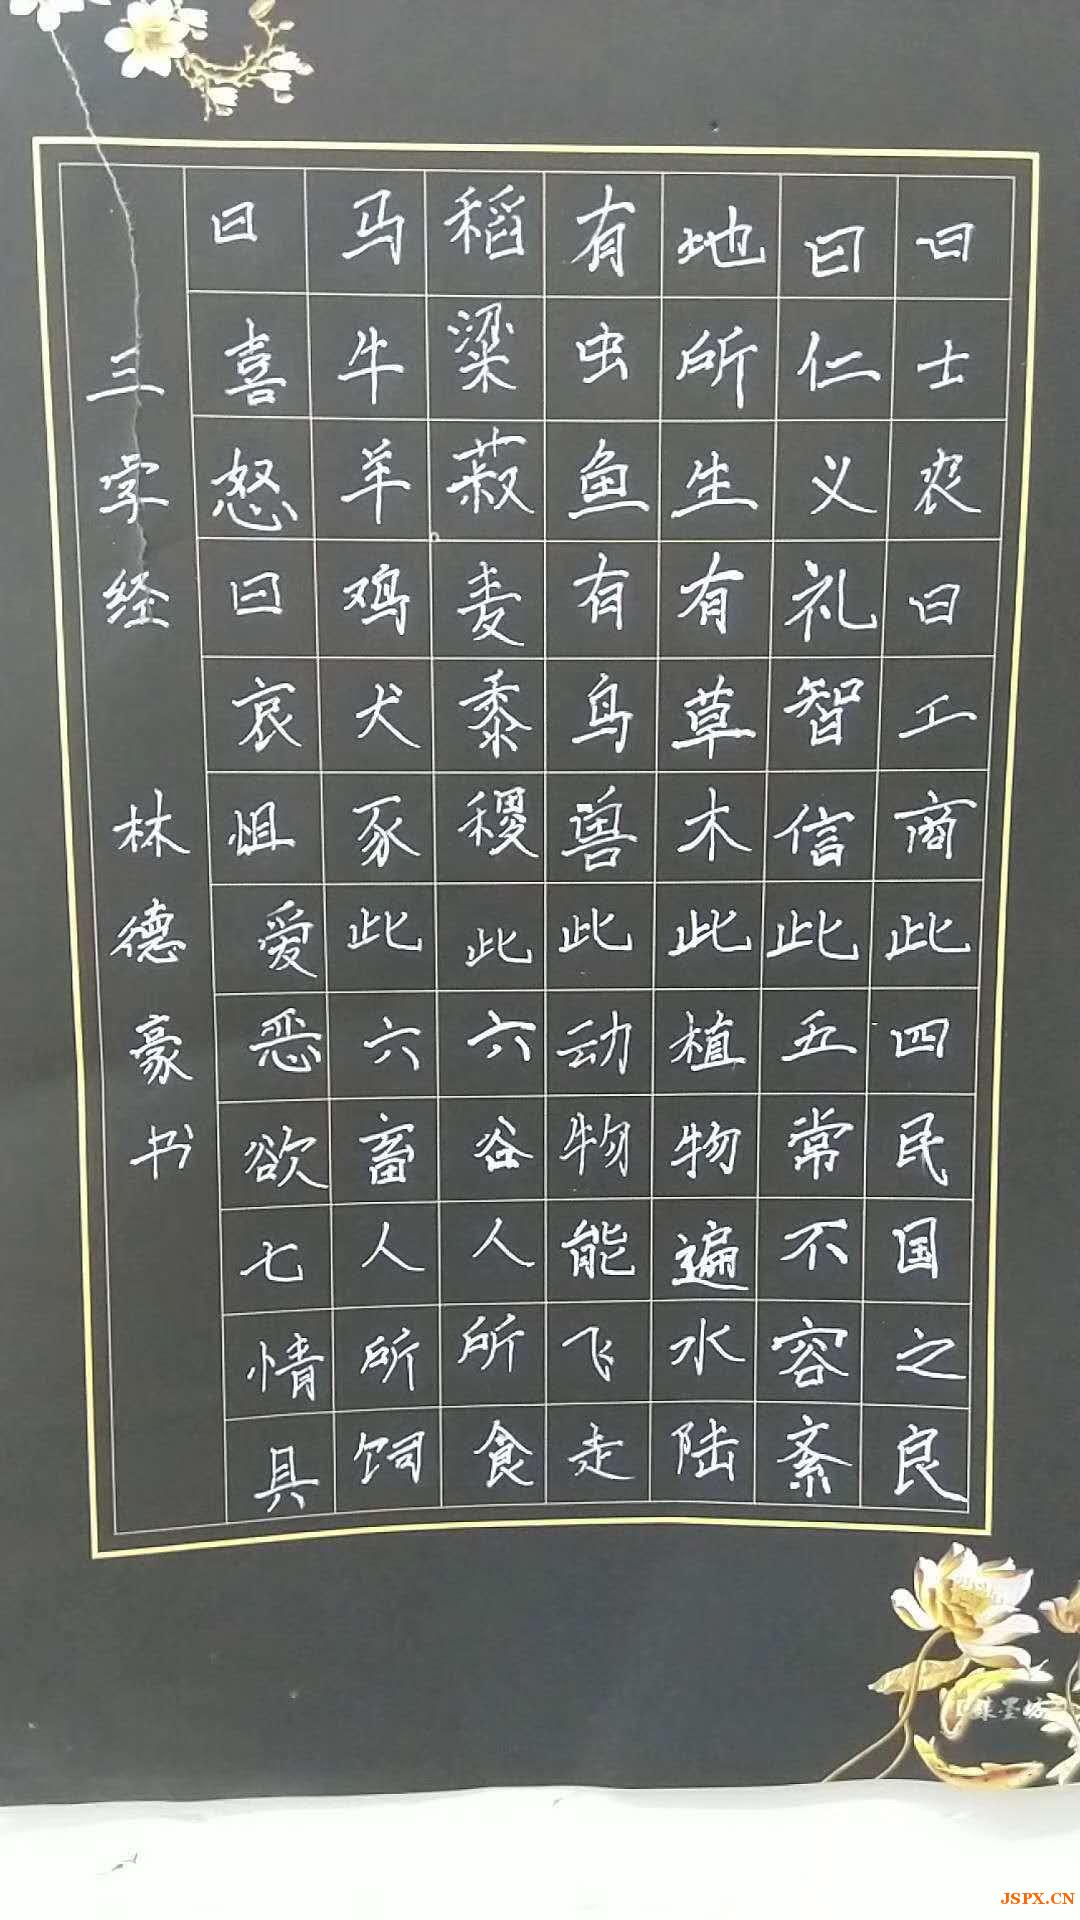 曰士农曰工商此四民国之良
曰仁义礼智信此五常不容紊
地所生有草木此植物遍水陆
有虫鱼有鸟兽此动物能飞走
稻粱菽麦黍稷此六谷人所食
马牛羊鸡犬豕此六畜人所饲
曰喜怒曰哀怚爱恶欲七情具
三字经 林德豪书
JSPX.CN